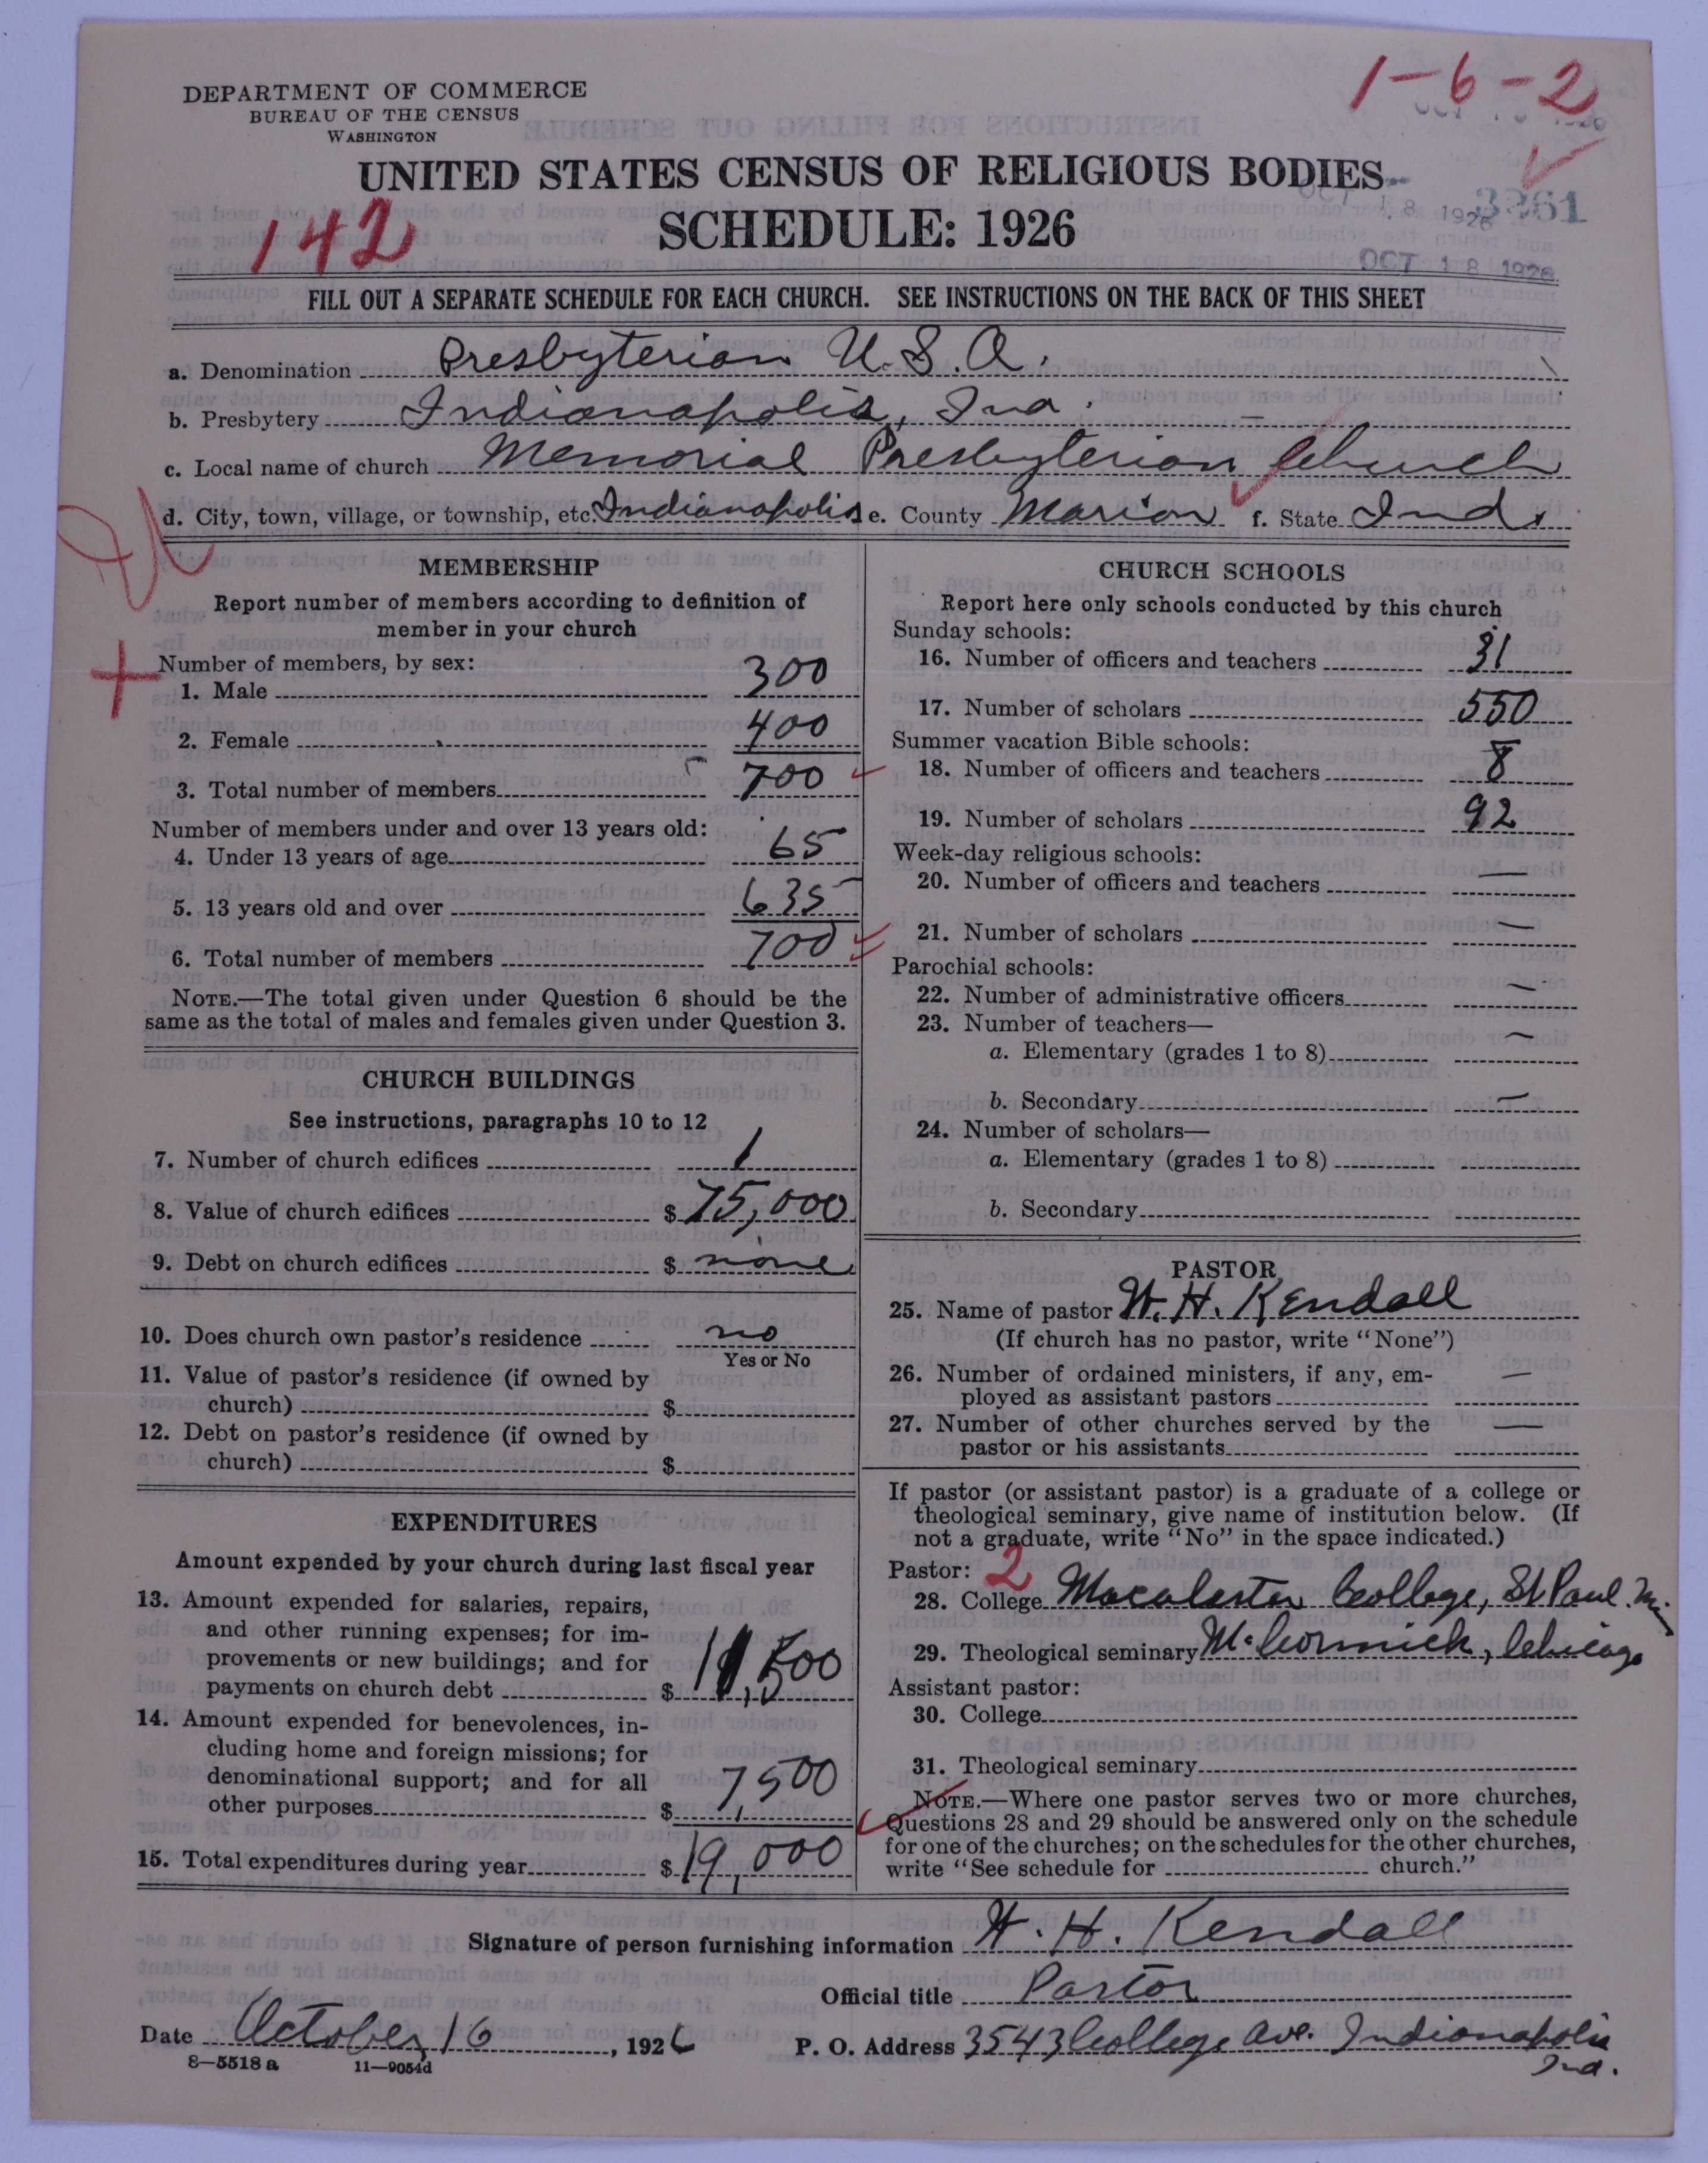 1-6-2
DEPARTMENT OF COMMERCE
BUREAU OF THE CENSUS
WASHINGTON
UNITED STATES CENSUS OF RELIGIOUS BODIES
SCHEDULE: 1926
142
OCT 18 1926
3261
OCT 18 1926
FILL OUT A SEPARATE SCHEDULE FOR EACH CHURCH. SEE INSTRUCTIONS ON THE BACK OF THIS SHEET
a. Denomination Presbyterian U.S.A.
b. Presbytery Indianapolis, Ind.
c. Local name of church Memorial Presbyterian Church
d. City, town, village, or township, etc. Indianapolis e. County Marion f. State Ind.
MEMBERSHIP
Report number of members according to definition of
member in your church
Number of members, by sex:
1. Male 300
2. Female 400
3. Total number of members 700
Number of members under and over 13 years old:
4. Under 13 years of age 65
5. 13 years old and over 635
6. Total number of members 700
NOTE.—The total given under Question 6 should be the
same as the total of males and females given under Question 3.
CHURCH BUILDINGS
See instructions, paragraphs 10 to 12
7. Number of church edifices 1
8. Value of church edifices $ 75,000
9. Debt on church edifices $ none
10. Does church own pastor's residence no
Yes or No
11. Value of pastor's residence (if owned by
church) $
12. Debt on pastor's residence (if owned by
church) $
EXPENDITURES
Amount expended by your church during last fiscal year
13. Amount expended for salaries, repairs,
and other running expenses; for im-
provements or new buildings; and for
payments on church debt $ 11,500
14. Amount expended for benevolences, in-
cluding home and foreign missions; for
denominational support; and for all
other purposes $ 7,500
15. Total expenditures during year $ 19,000
CHURCH SCHOOLS
Report here only schools conducted by this church
Sunday schools:
16. Number of officers and teachers 31
17. Number of scholars 550
Summer vacation Bible schools:
18. Number of officers and teachers 8
19. Number of scholars 92
Week-day religious schools:
20. Number of officers and teachers —
21. Number of scholars —
Parochial schools:
22. Number of administrative officers —
23. Number of teachers—
a. Elementary (grades 1 to 8) —
b. Secondary —
24. Number of scholars—
a. Elementary (grades 1 to 8)
b. Secondary
PASTOR
25. Name of pastor W. H. Kendall
(If church has no pastor, write "None")
26. Number of ordained ministers, if any, em-
ployed as assistant pastors —
27. Number of other churches served by the
pastor or his assistants —
If pastor (or assistant pastor) is a graduate of a college or
theological seminary, give name of institution below. (If
not a graduate, write "No" in the space indicated.)
Pastor: 2
28. College Macalester College, St Paul. M.
29. Theological seminary McCormick, Chicago
Assistant pastor:
30. College
31. Theological seminary
NOTE.—Where one pastor serves two or more churches,
Questions 28 and 29 should be answered only on the schedule
for one of the churches; on the schedules for the other churches,
write "See schedule for church."
Signature of person furnishing information W. H. Kendall
Official title Pastor
Date October 16, 1926 P. O. Address 3543 College Ave. Indianapolis
Ind.
8—5518 a 11—9054d